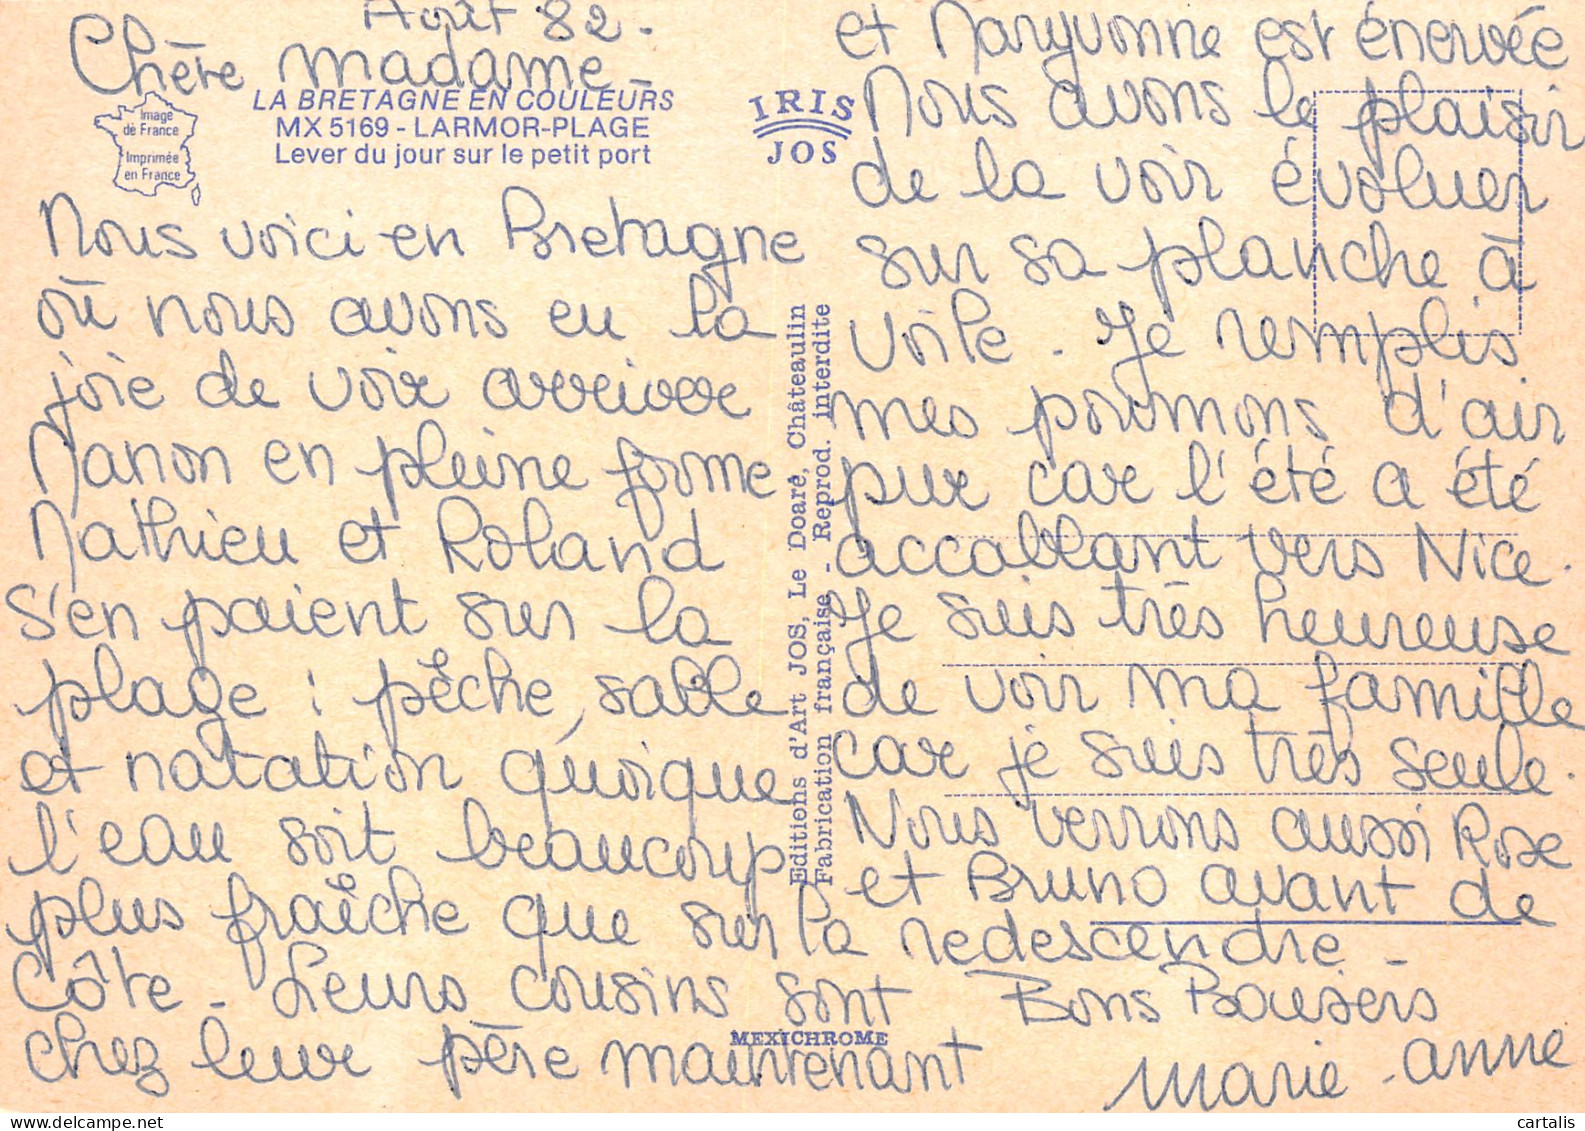 Août 82.
Chère Madame
Image
de France
Imprimée
en France
LA BRETAGNE EN COULEURS
MX 5169 - LARMOR-PLAGE
Lever du jour sur le petit port
IRIS
JOS
Nous voici en Bretagne
où nous avons eu la
joie de voir arriver
Manon en pleine forme
Mathieu et Roland
S'en paient sur la
plage : pêche, sable
et natation quoique
l'eau soit beaucoup
plus fraîche que sur la
Côte. Leurs cousins sont
chez leur père maintenant
et Maryvonne est énervée
Nous avons le plaisir
de la voir évoluer
sur sa planche à
voile. Je remplis
mes poumons d'air
pur car l'été a été
accablant vers Nice.
Je suis très heureuse
de voir ma famille
car je suis très seule.
Nous verrons aussi Rose
et Bruno avant de
redescendre.
Bons Baisers
Marie-Anne
Editions d'Art JOS, Le Doaré, Châteaulin
Fabrication française - Reprod. interdite
MEXICHROME
cartalis
www.delcampe.net